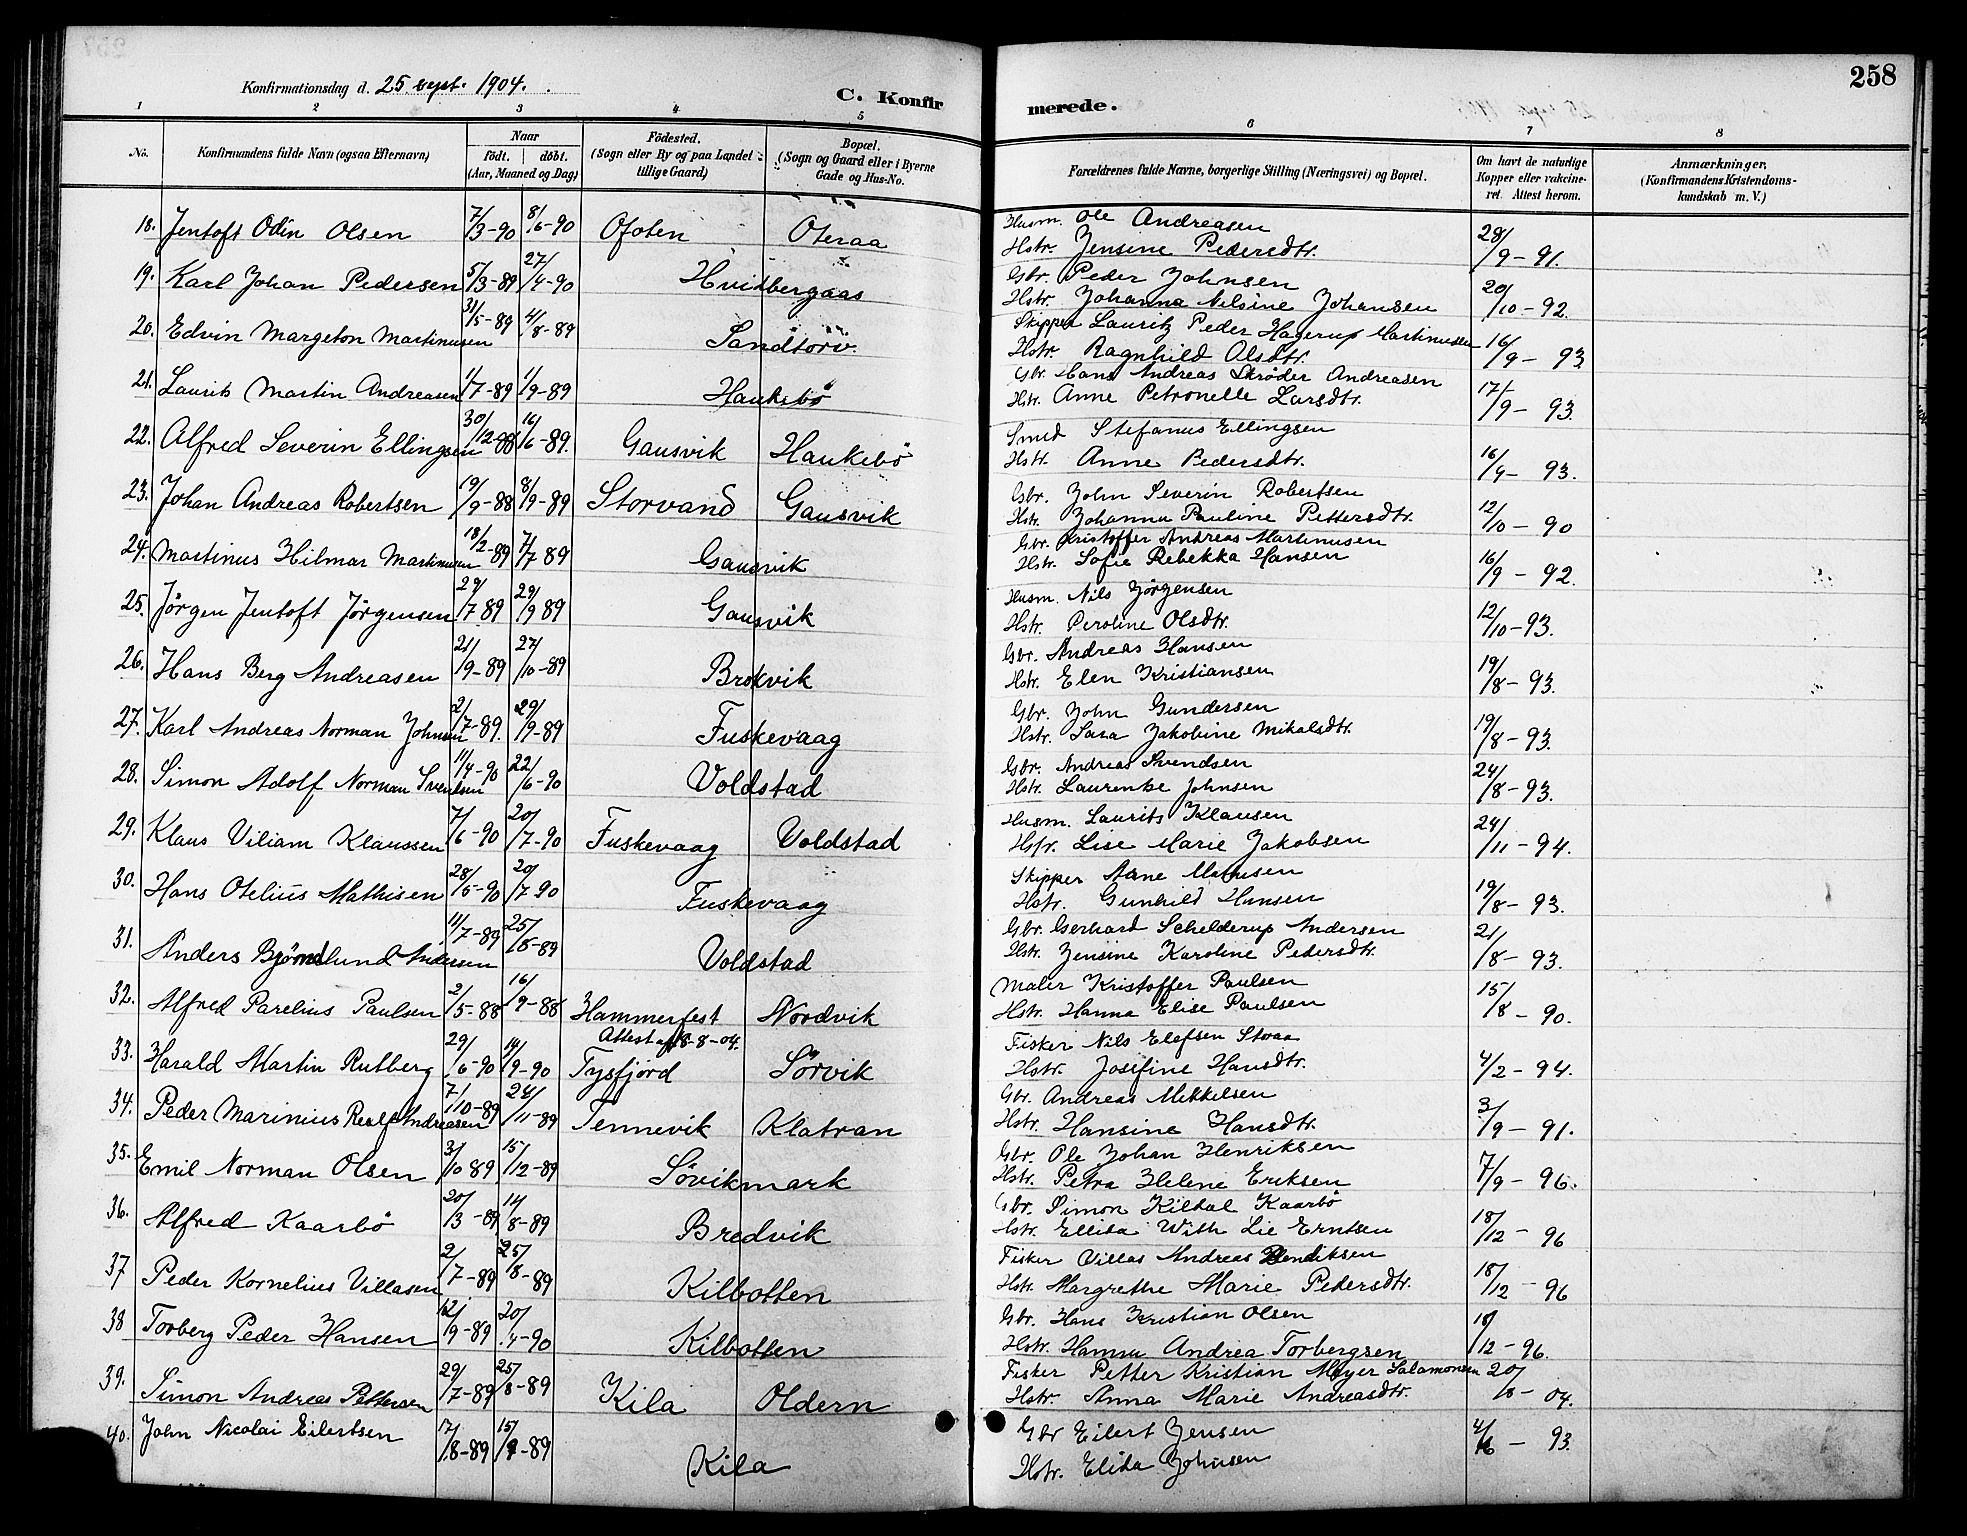 258
Konfirmationsdag d. 25 sept. 1904.
C. Konfirmerede.
1 2 3 4 5 6 7 8
No. Konfirmandens fulde Navn (ogsaa Efternavn) Naar født. døbt. (Aar, Maaned og Dag) Födested. (Sogn eller By og paa Landet tillige Gaard) Bopæl. (Sogn og Gaard eller i Byerne Gade og Hus-No. Forældrenes fulde Navne, borgerlige Stilling (Næringsvei) og Bopæl. Om havt de naturlige Kopper eller vakcineret. Attest herom. Anmærkninger. (Konfirmandens Kristendomskundskab m. V.)
18. Jentoft Odin Olsen 7/3-90 8/6-90 Ofoten Oteraa Husm. Ole Andreasen
Hstr. Jensine Pedersdtr. 28/9-91.
19. Karl Johan Pedersen 5/3-89 27/4-90 Hvidbergaas Gbr. Peder Johnsen
Hstr. Johanna Nilsine Johansen 20/10-92.
20. Edvin Margeton Martinusen 31/5-89 4/8-89 Sandtorv Skipper Lauritz Peder Hagerup Martinussen
Hstr. Ragnhild Olsdtr. 16/9-93
21. Laurits Martin Andreasen 1/7-89 1/9-89 Haukebø Gbr. Hans Andreas Skrøder Andreasen
Hstr. Anne Petronelle Larsdtr. 17/9-93.
22. Alfred Severin Ellingsen 30/12-88 16/6-89. Gausvik Haukebø Smed Stefanus Ellingsen
Hstr. Anne Pedersdtr. 16/9-93.
23. Johan Andreas Robertsen 19/9-88 8/9-89 Storvand Gausvik Gbr. John Severin Robertsen
Hstr. Johanna Pauline Pettersdtr. 12/10-90
24. Martinus Hilmar Martinusen 18/2-89 7/7 89 Gausvik Gbr. Kristoffer Andreas Martinusen
Hstr. Sofie Rebekka Hansen 16/9-92.
25. Jörgen Jentoft Jörgensen 29/7 89 29/9 89 Gausvik Husm. Nils Jörgensen
Hstr. Peroline Olsdtr. 12/10-93.
26. Hans Berg Andreasen 21/9-89 27/10-89 Brokvik Gbr. Andreas Hansen
Hstr. Elen Kristiansen 19/8-93.
27. Karl Andreas Norman Johnsen 2/7-89. 29/9-89 Fuskevaag Gbr. John Gundersen
Hstr. Sara Jakobine Mikalsdtr. 19/8-93.
28. Simon Adolf Norman Svendsen 11/4-90 22/6-90 Voldstad Gbr. Andreas Svendsen
Hstr. Laurenke Johnsen 24/8-93.
29. Klaus Viliam Klaussen 7/6-90 20/7-90 Fuskevaag Voldstad Husm. Laurits Klausen
Hstr. Lise Marie Jakobsen 24/11-94.
30. Hans Otelius Mathisen 28/5-90 20/7-90 Fuskevaag Skipper Mathisen
Hstr. Gunhild Hansen 19/8-93.
31. Anders Björnslund Andersen 11/7-89 25/8-89 Voldstad Gbr. Gerhard Schelderup Andersen
Hstr. Jensine Karoline Pedersdtr. 21/8-93.
32. Alfred Parelius Paulsen 2/5-88 16/9-88 Hammerfest Nordvik Maler Kristoffer Paulsen
Attest af 18-8-04. Hstr. Hanna Elise Paulsen 15/8-90.
33. Harald Martin Rutberg 29/6-90 14/9-90 Tysfjord Sörvik Fisker Nils Elefsen Storaa
Hstr. Josefine Hansdtr. 4/2-94.
34. Peder Marinius Realf Andreasen 7/10-89 24/11-89 Tennevik Klatran Gbr. Andreas Mikkelsen
Hstr. Hansine Hansdtr. 3/9-91.
35. Emil Norman Olsen 3/10 89 15/12-89 Sövikmark Gbr. Ole Johan Henriksen
Hstr. Petra Helene Eriksen 7/9-96.
36. Alfred Kaarbö 20/3-89 11/8-89 Bredvik Gbr. Simon Kildal Kaarbö
Hstr. Ellida With Lie Erntsen 18/12-96
37 Peder Kornelius Villasen 2/7-89 25/8-89 Kilbotten Fisker Villas Andreas Bendiksen
Hstr. Margrethe Marie Pedersdtr. 18/12-96
38 Torberg Peder Hansen 12/9-89 20/4-90 Kilbotten Gbr. Hans Kristian Olsen
Hstr. Hanna Andrea Torbergsen 18/12-96.
39. Simon Andreas Pettersen 29/7-89 25/8-89 Kila Oldern Fisker Petter Kristian Meyer Salamonsen
Hstr. Anna Marie Andreasdtr. 20/8-04.
40. John Nicolai Eilertsen 17/8-89 15/9-89 Kila Gbr Eilert Jensen
Hstr. Elida Johnsen 4/6-93.